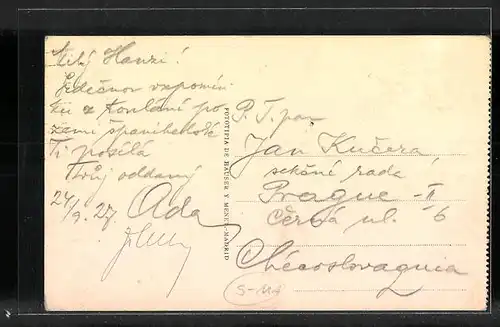 Milý Hanzi!
Srdečnou vzpomín
ku z toulání po
zemi španělské
Ti posílá
Tvůj oddaný
24/9. 27. Ada
FOTOTIPIA DE HAUSER Y MENET.-MADRID
P. T. pan
Jan Kučera
sekční rada
Prague - II
Černá ul. 6
Chécoslovaquia
S-114